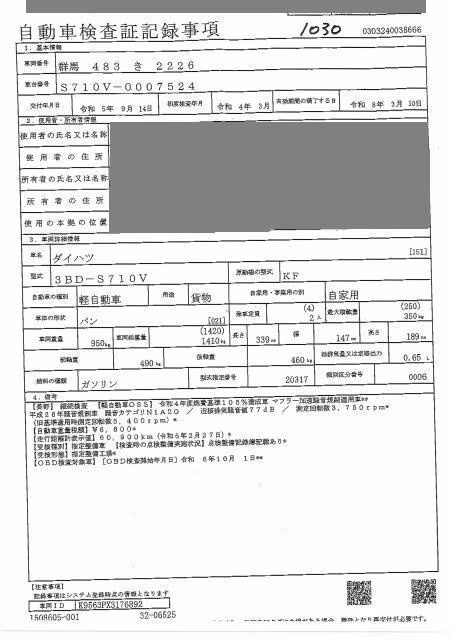 自動車検査証記録事項
1030
0303240038666
1. 基本情報
車両番号 群馬 483 き 2226
車台番号 S710V-0007524
交付年月日 令和 5年 9月 14日 初度検査年月 令和 4年 3月 有効期間の満了する日 令和 8年 3月 10日
2. 使用者・所有者情報
使用者の氏名又は名称
使用者の住所
所有者の氏名又は名称
所有者の住所
使用の本拠の位置
3. 車両詳細情報
車名 ダイハツ [151]
型式 3BD-S710V 原動機の型式 KF
自動車の種別 軽自動車 用途 貨物 自家用・事業用の別 自家用
車体の形状 バン [021] 乗車定員 (4) 2人 最大積載量 (250) 350kg
車両重量 950kg 車両総重量 (1420) 1410kg 長さ 339cm 幅 147cm 高さ 189cm
前前軸重 490kg 後後軸重 460kg 総排気量又は定格出力 0.65 L
燃料の種類 ガソリン 型式指定番号 20317 類別区分番号 0006
4. 備考
継続検査 【軽自動車OSS】 令和4年度燃費基準105%達成車 マフラー加速騒音規制適用車**
平成28年騒音規制車 騒音カテゴリN1A2G / 近接排気騒音値77dB / 測定回転数3,750rpm*
(旧基準適用時測定回転数5,400rpm)*
【自動車重量税額】¥6,600*
【走行距離計表示値】60,900km
【受検種別】指定整備車 【検査時の点検整備実施状況】点検整備記録簿記載あり*
【受検形態】指定整備工場*
【OBD検査対象車】[OBD検査開始年月日] 令和 6年10月 1日**
【注意事項】
記録事項はシステム登録時点の情報となります
車両ID K9563PX3176892
1508605-001 32-06525